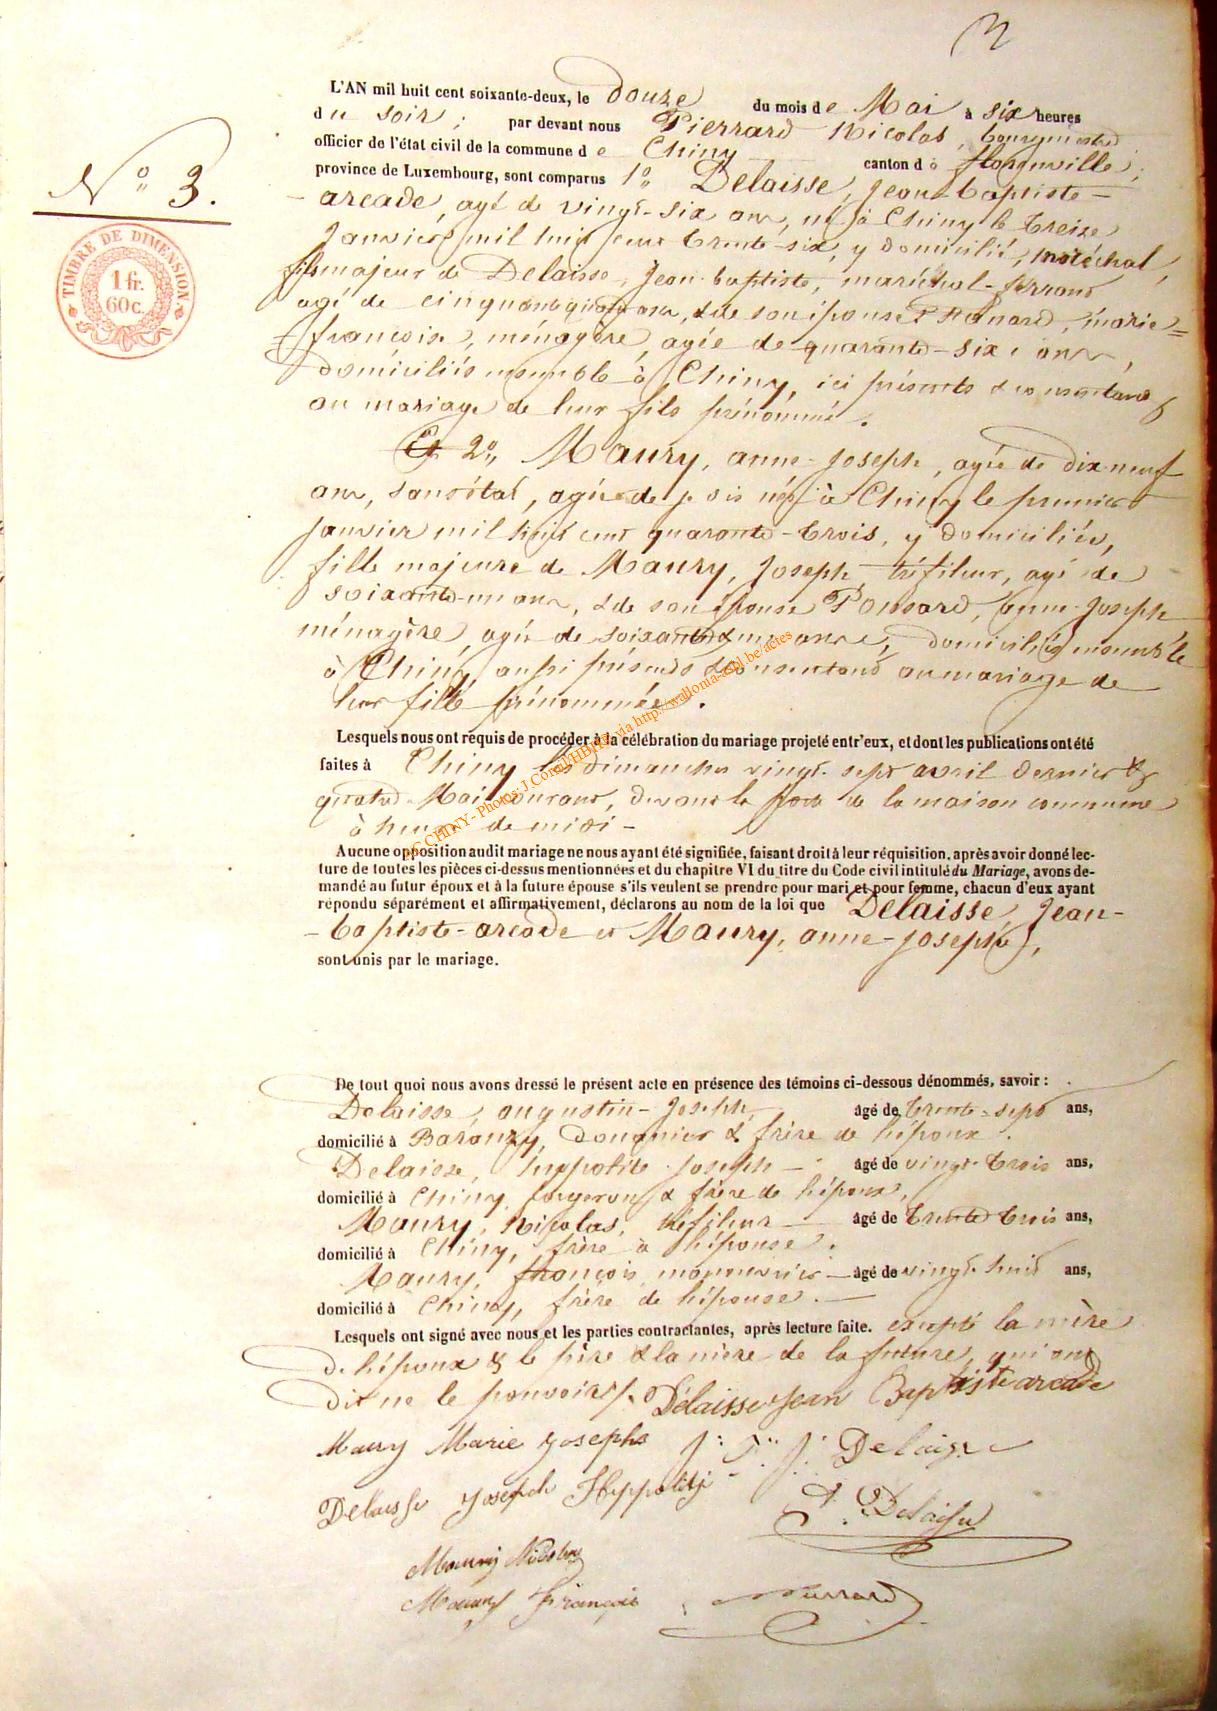 3
L'AN mil huit cent soixante-deux, le douze du mois de Mai à six heures
du soir; par devant nous Pierrard Nicolas, bourgmestre
officier de l'état civil de la commune de Chiny canton de florenville;
province de Luxembourg, sont comparus 1° Delaisse, Jean-baptiste-
N° 3.
-arcade, agé de vingt-six ans, né à Chiny le treize
TIMBRE DE DIMENSION
1 fr.
60 c.
Janvier mil huit cent trente-six, y domicilié, maréchal,
fils majeur de Delaisse, Jean-baptiste, maréchal-ferrand
agé de cinquante quatre ans, & de son épouse, marie=
=françoise, ménagère, agée de quarante-six ans,
domiciliés ensemble à Chiny, ici présents & consentant
au mariage de leur fils prénommé.
Et 2°, Maury, anne-Joseph, agée de dix-neuf
ans, sans état, née à Chiny le premier
Janvier mil huit cent quarante-trois, y domiciliée,
fille majeure de Maury, Joseph, tréfileur, agé de
soixante-un ans, & de son épouse Ponsard, anne-Joseph
ménagère, agée de soixante & un ans, domiciliés ensemble
à Chiny, aussi présents & consentant au mariage de
leur fille prénommée.
Lesquels nous ont requis de procéder à la célébration du mariage projeté entr'eux, et dont les publications ont été
faites à Chiny les dimanches vingt-sept avril dernier &
quatre Mai courant, devant la porte de la maison commune
à heure de midi -
Aucune opposition audit mariage ne nous ayant été signifiée, faisant droit à leur réquisition, après avoir donné lec-
ture de toutes les pièces ci-dessus mentionnées et du chapitre VI du titre du Code civil intitulé du Mariage, avons de-
mandé au futur époux et à la future épouse s'ils veulent se prendre pour mari et pour femme, chacun d'eux ayant
répondu séparément et affirmativement, déclarons au nom de la loi que Delaisse, Jean-
-baptiste-arcade et Maury, anne-Joseph,
sont unis par le mariage.
AC CHINY - Photos: J.Cornil/HBHP via http://wallonia-asbl.be/actes
De tout quoi nous avons dressé le présent acte en présence des témoins ci-dessous dénommés, savoir :
Delaisse, augustin-Joseph, âgé de trente-sept ans,
domicilié à Baranzy, douanier & frère de l'époux.
Delaisse, hyppolite-Joseph - âgé de vingt-trois ans,
domicilié à Chiny, forgeron & frère de l'époux,
Maury, Nicolas, tréfileur âgé de trente trois ans,
domicilié à Chiny, frère à l'épouse.
Maury, françois, manouvrier - âgé de vingt-huit ans,
domicilié à Chiny, frère de l'épouse.
Lesquels ont signé avec nous et les parties contractantes, après lecture faite. excepté la mère
de l'époux & le père & la mère de la future, qui ont
dit ne le pouvoir. Delaisse Jean Baptiste arcade
Maury Marie Josephe J: J: Delaisse
Delaisse Joseph Hyppolite
Delaisse
Maury Nicolas
Maury François Pierrard